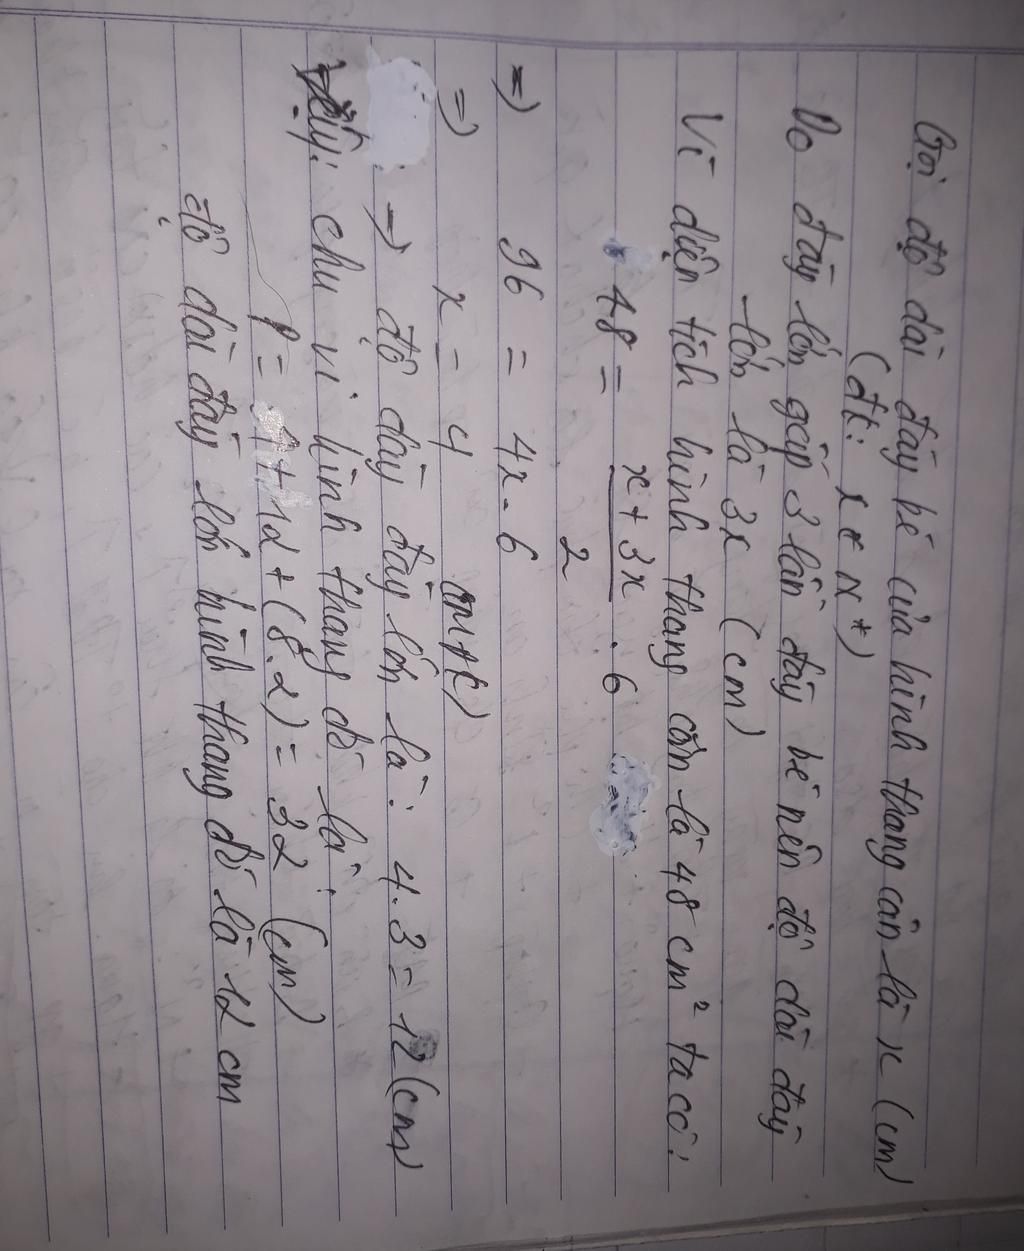 Gọi độ dài đáy bé của hình thang cân là x (cm)
(đt: x ∈ N*)
Do đáy lớn gấp 3 lần đáy bé nên độ dài đáy
lớn là 3x (cm)
Vì diện tích hình thang cân là 48 cm² ta có:
48 = (x + 3x)/2 . 6
=) 96 = 4x . 6
=) x = 4 (m+k)
→ độ dày đáy lớn là: 4.3 = 12 (cm)
Vậy: chu vi hình thang đó là:
P = 4 + 12 + (8.2) = 32 (cm)
độ dài đáy lớn hình thang đó là 12 cm